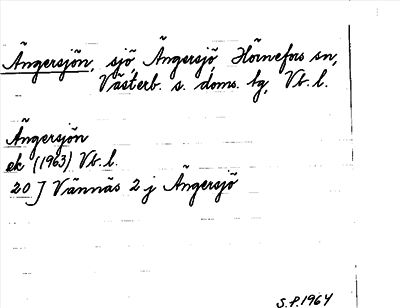 Ängersjön, sjö, Ängersjö, Hörnefors sn,
Västerb. s. doms. tg, Vb. l.
Ängersjön
ek (1963) Vb. l.
20J Vännäs 2 j Ängersjö
S.P. 1964